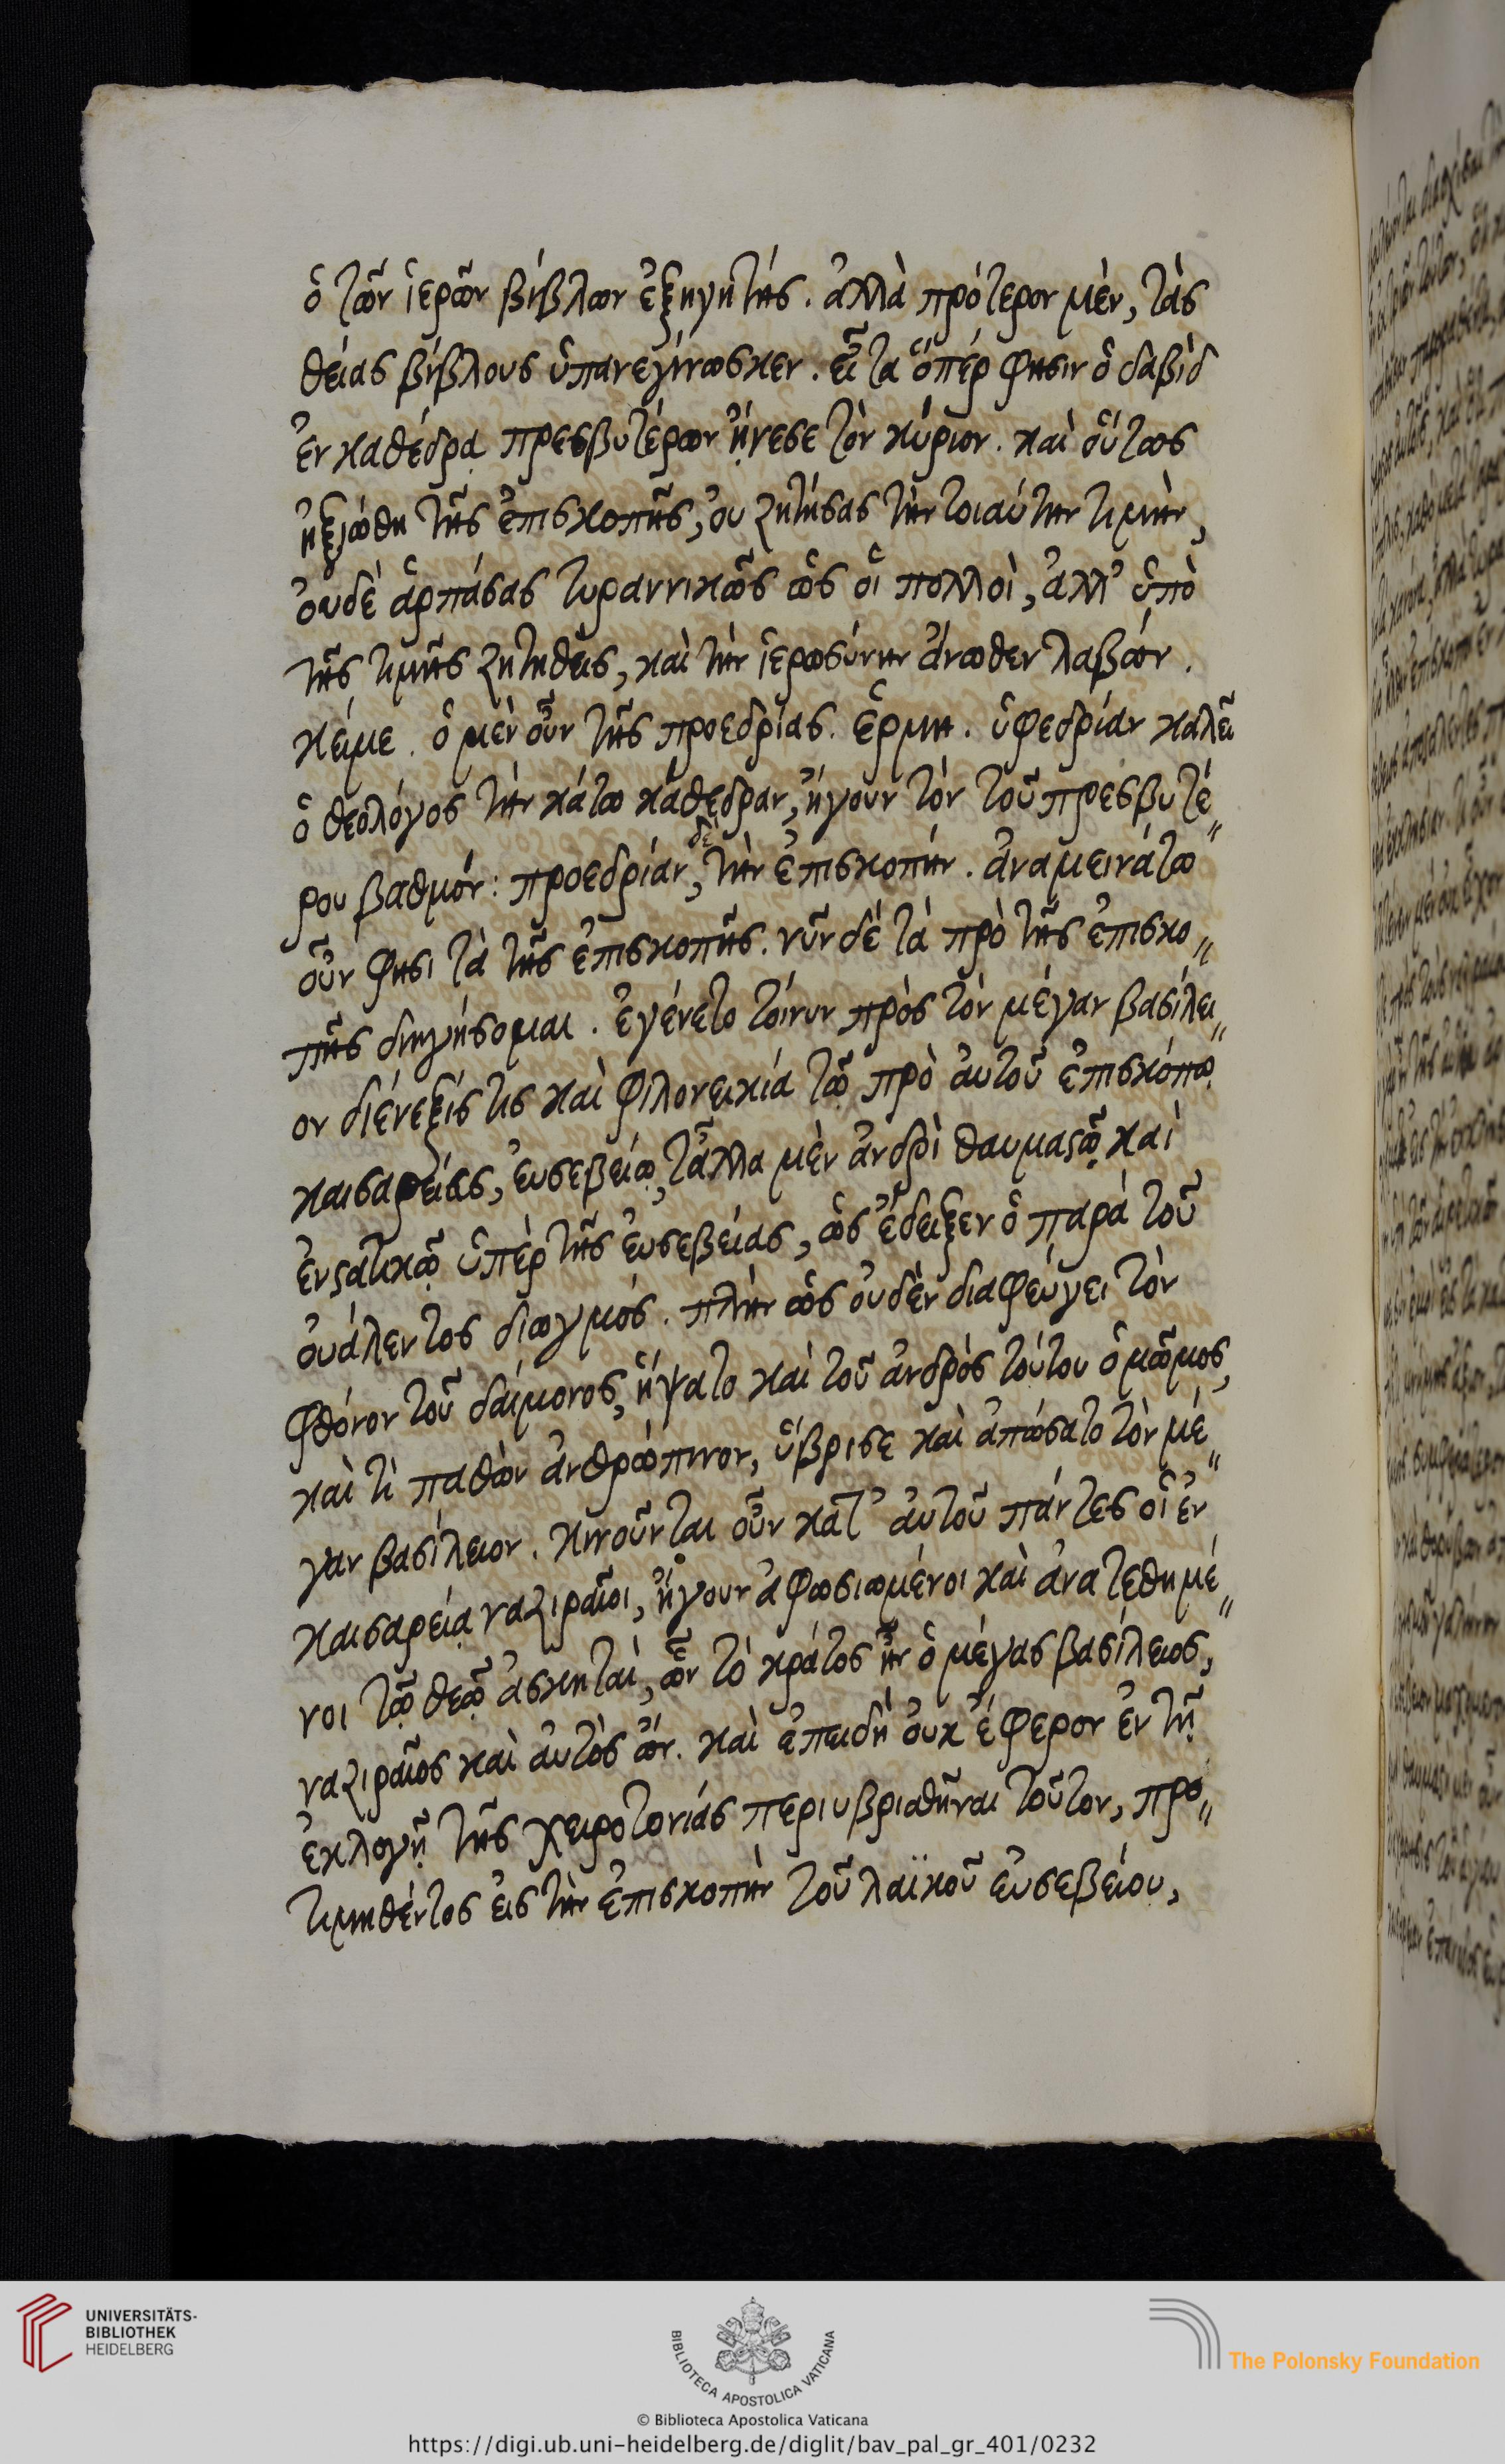 ὁ τῶν ἱερῶν βίβλων ἐξηγητής. ἀλλὰ πρότερον μὲν, τὰς
θείας βίβλους ὑπανεγίνωσκεν. εἶτα ὅπέρ φησιν ὁ δαβὶδ
ἐν καθέδρᾳ πρεσβυτέρων ᾔνεσε τὸν κύριον. καὶ οὕτως
ἠξιώθη τῆς ἐπισκοπῆς, ὀυ ζητήσας τὴν τοιαύτην τιμὴν,
ὀυδὲ ἁρπάσας τυραννικῶς ὡς ὁι πολλοὶ, ἀλλ' ὑπὸ
τῆς τιμῆς ζητηθεὶς, καὶ τὴν ἱερωσύνην ἄνωθεν λαβών.
κείμε. ὁ μὲν οὖν τῆς προεδρίας. ἑρμη. ὑφεδρίαν καλεῖ
ὁ θεολόγος τὴν κάτω κάθεδραν, ἤγουν τὸν τοῦ πρεσβυτέ„
ρου βαθμόν: προεδρίαν δὲ, τὴν ἐπισκοπήν. ἀναμεινάτω
οὖν φησι τὰ τῆς ἐπισκοπῆς. νῦν δὲ τὰ πρὸ τῆς ἐπισκο„
πῆς διηγήσομαι. ἐγένετο τοίνυν πρὸς τὸν μέγαν βασίλει„
ον διένεξίς τις καὶ φιλονεικία τῷ πρὸ ἀυτοῦ ἐπισκόπῳ
καισαρείας, ἐυσεβείῳ, τἆλλα μὲν ἀνδρὶ θαυμαςῷ καὶ
ἐνςατικῷ ὑπὲρ τῆς ἐυσεβείας, ὡς ἔδειξεν ὁ παρὰ τοῦ
ὀυάλεντος διωγμός. πλὴν ὡς ὀυδὲν διαφεύγει τὸν
φθόνον τοῦ δαίμονος, ἥψατο καὶ τοῦ ἀνδρὸς τούτου ὁ μῶμος,
καὶ τὶ παθὼν ἀνθρώπινον, ὕβρισε καὶ ἀπώσατο τὸν μέ„
γαν βασίλειον. κινοῦνται οὖν κατ' ἀυτοῦ πάντες ὁι ἐν
καισαρείᾳ ναζιραῖοι, ἤγουν ἀφωσιωμένοι καὶ ἀνατεθημέ„
νοι τῷ θεῷ ἀσκηταὶ, ὧν τὸ κράτος ἦν ὁ μέγας βασίλειος,
ναζιραῖος καὶ ἀυτὸς ὤν. καὶ ἐπειδὴ ὀυκ ἔφερον ἐν τῇ
ἐκλογῇ τῆς χειροτονίας περιυβρισθῆναι τοῦτον, προ„
τιμηθέντος ἐις τὴν ἐπισκοπὴν τοῦ λαϊκοῦ ἐυσεβείου,
UNIVERSITÄTS-
BIBLIOTHEK
HEIDELBERG
BIBLIOTECA APOSTOLICA VATICANA
The Polonsky Foundation
© Biblioteca Apostolica Vaticana
https://digi.ub.uni-heidelberg.de/diglit/bav_pal_gr_401/0232